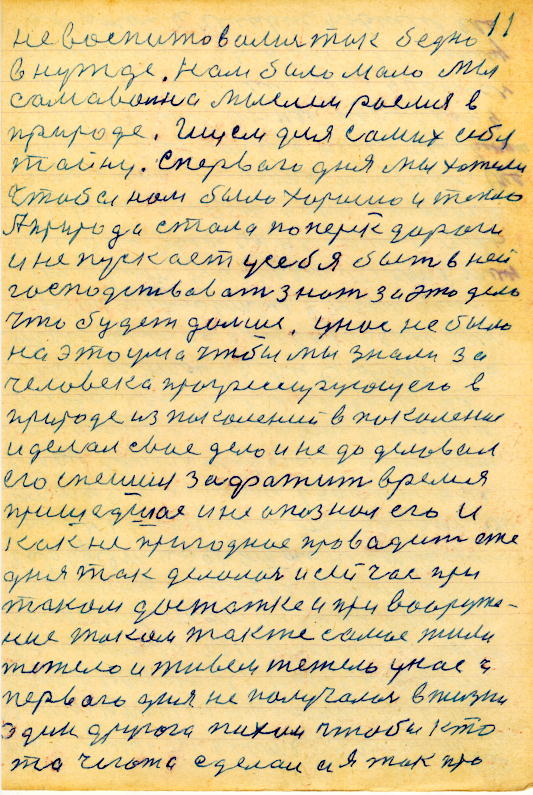 11
не воспитовался так бедно
в нужде. Нам было мало мы
самавонна мыслим роемся в
природе. Ищем для самих себя
тайну. Спервого дня мы хотели
чтобы нам было хорошо и тепло
А природа стала поперек дороги
и не пускает усебя быть в ней
господствовать знать за это дело
что будет дальше. Унас не было
на это ума чтобы мы знали за
человека прогресирующего в
природе из поколений в поколение
и делал свае дело и не доделовал
его спешил захватит время
пришедшае и не опознал его и
как не пригодное провадит еже
дня так делолось и сейчас при
таком достатке и при вооруже-
ние таком такте самое жили
тежело и живем тежело унас с
первого дня не получалось в жизни
Один другога пихал чтобы кто
та чегота сделал а я так про